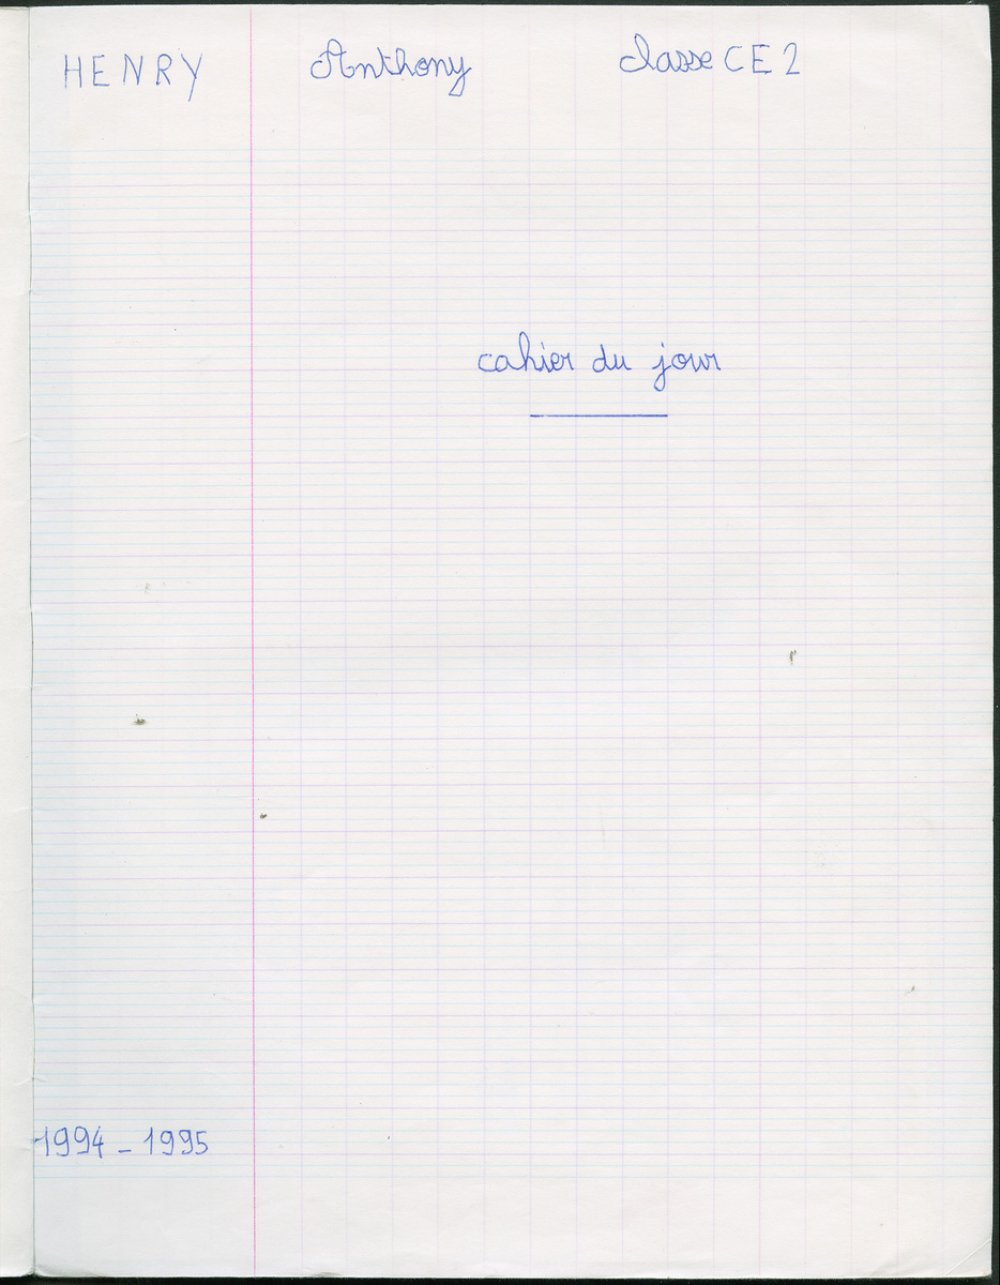 HENRY Anthony classe CE2
cahier du jour
1994 - 1995